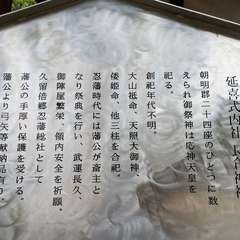 延喜式内社 長谷神社
朝明郡二十四座のひとつに数
えられ御祭神は応神天皇を
祀る。
創祀年代不明。
大山祇命、天照大御神、
倭姫命、他三柱を合祀。
忍藩時代には藩公が斎主と
なり祭典を行い、武運長久、
御陣屋繁栄、領内安全を祈願。
久留倍郷忍藩総社として
藩公の手厚い保護を受ける。
藩公より弓矢等献納品有り。